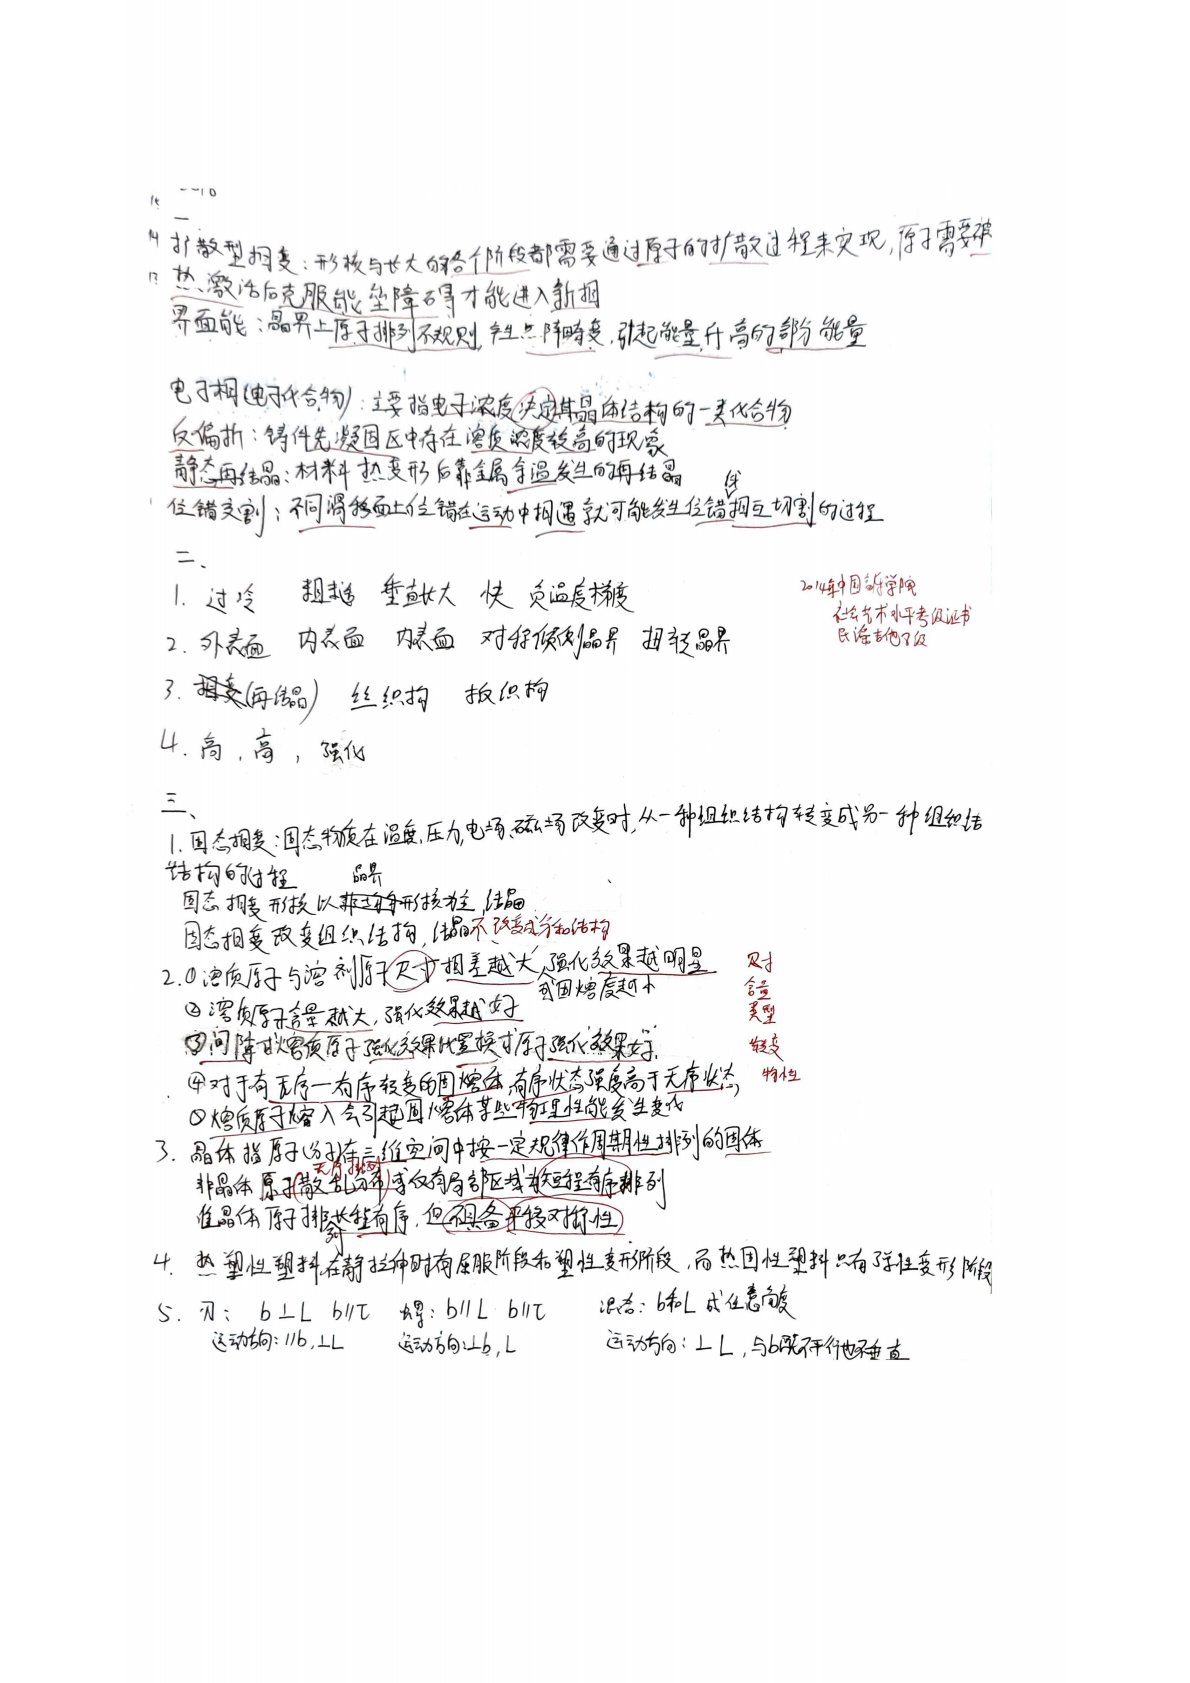 一
扩散型相变：形核与长大的各个阶段都需要通过原子的扩散过程来实现，原子需要被
热激活后克服能垒障碍才能进入新相
界面能：晶界上原子排列不规则，产生点阵畸变，引起能量升高的部分能量
电子相(电子化合物)：主要指电子浓度决定其晶体结构的一类化合物
反偏折：铸件先凝固区中存在溶质浓度较高的现象
静态再结晶：材料热变形后靠金属余温发生的再结晶
位错交割：不同滑移面上位错在运动中相遇就可能发生位错相互切割的过程
二、
1. 过冷 粗糙 垂直长大 快 负温度梯度
2014年中国音乐学院
社会艺术水平考级证书
民谣吉他7级
2. 外表面 内表面 内表面 对称倾侧晶界 扭转晶界
3. 相变(再结晶) 丝织构 板织构
4. 高，高，强化
三、
1. 固态相变：固态物质在温度、压力、电场、磁场改变时，从一种组织结构转变成另一种组织结
结构的过程
晶界
固态相变形核以非均匀形核为主，结晶
固态相变改变组织结构，结晶不改变成分和结构
2.①溶质原子与溶剂原子尺寸相差越大，强化效果越明显
或固溶度越小
②溶质原子含量越大，强化效果越好
③间隙式溶质原子强化效果比置换式原子强化效果好
④对于有无序—有序转变的固溶体，有序状态强度高于无序状态
⑤溶质原子溶入会引起固溶体某些物理性能发生变化
尺寸
含量
类型
转变
物性
3. 晶体指原子(分子)在三维空间中按一定规律作周期性排列的固体
无序排列
非晶体原子散乱分布或仅有局部区域为短程有序排列
准晶体原子排列长程有序，但不具备平移对称性
4. 热塑性塑料在静拉伸时有屈服阶段和塑性变形阶段，而热固性塑料只有弹性变形阶段
5. 刃：b⊥L b∥τ 螺：b∥L b∥τ 混合：b和L成任意角度
运动方向：∥b，⊥L 运动方向：⊥b，L 运动方向：⊥L，与b既不平行也不垂直